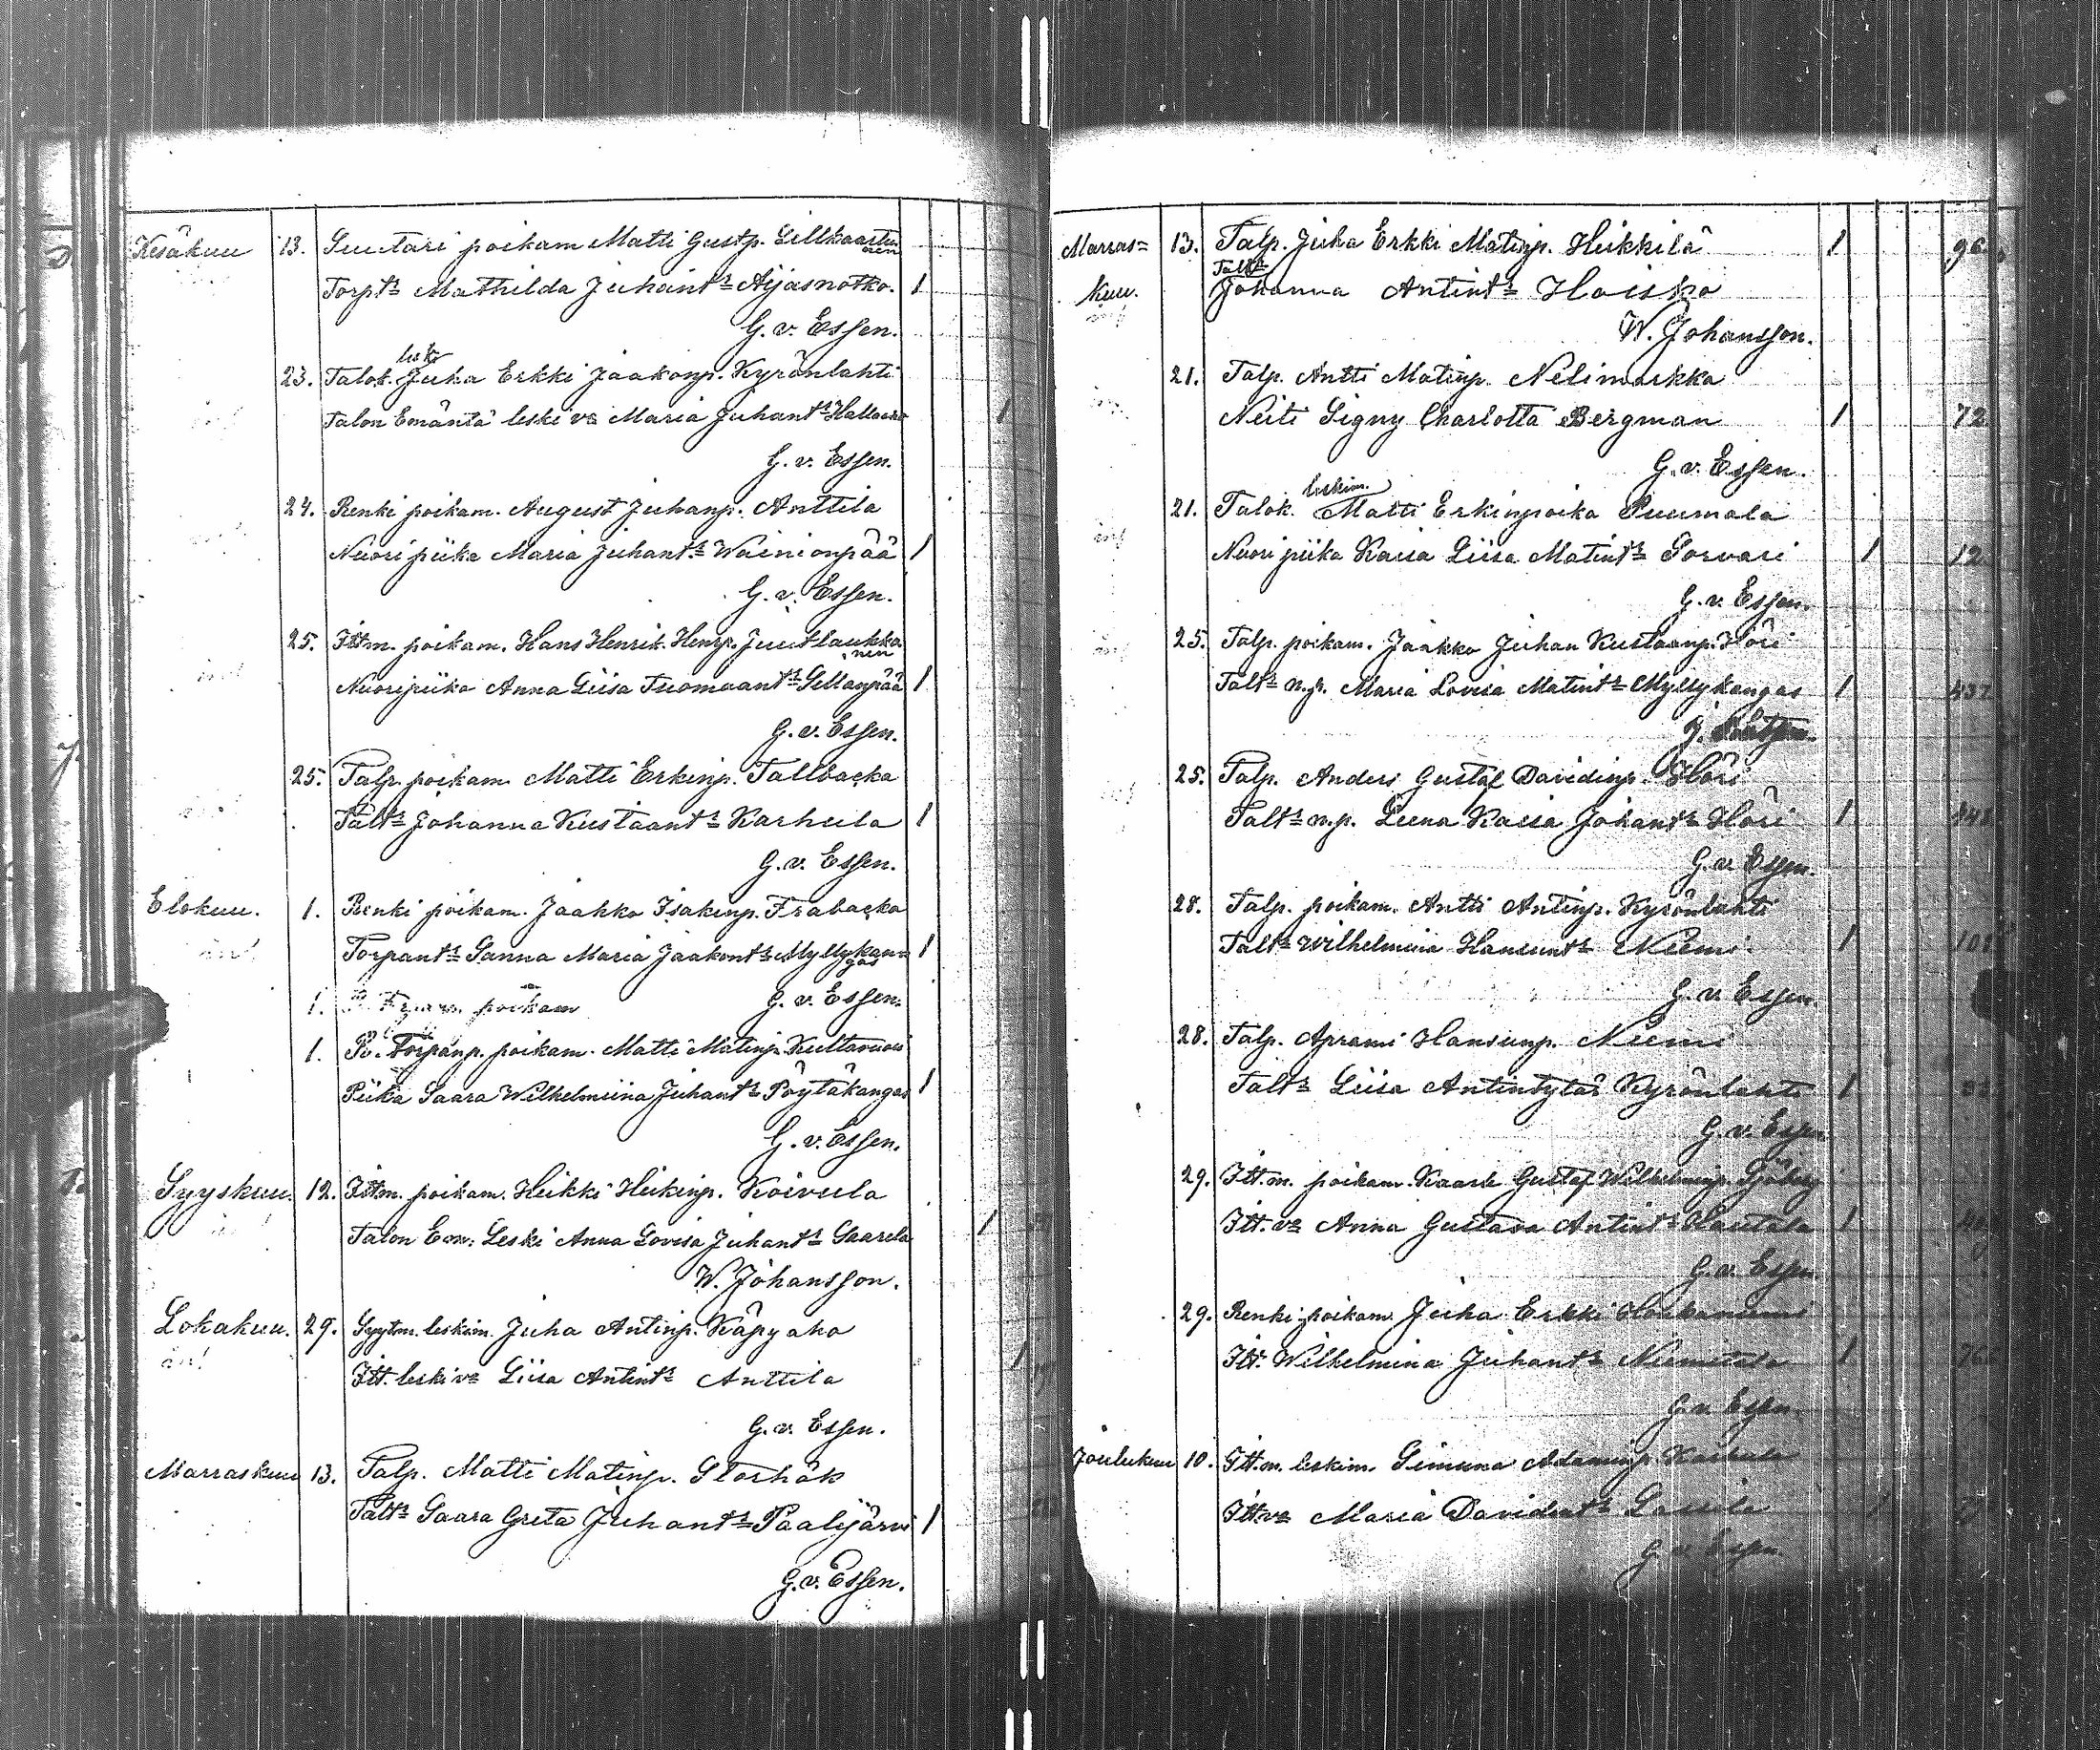 Kesäkuu 13. Suutari poikam Matti Gustp. Lillkaarta
nen
Torpts Mathilda Juhants Äijäsnotko. 1
G. v. Essen.
lesk
23. Talok. Juha Erkki Jaakonp. Kyrönlahti
Talon Emäntä leski va Maria Juhants 1
G. v. Essen.
24. Renki poikam. August Juhanp. Anttila
Nuori piika Maria Juhants Wainionpää 1
G. v. Essen.
25. Ittm. poikam. Hans Henrik Henrp. Juutlaukka
nen
Nuoripiika Anna Liisa Tuomaants Sillanpää 1
G. v. Essen.
25. Talp. poikam Matti Erkinp. Tallbacka
Talts Johanna Kustaants Karhula 1
G. v. Essen.
Elokuu. 1. Renki poikam. Jaakko Isakinp. Frabacka
Torpants Sanna Maria Jaakonts Myllykan=
gas 1
1. poikam G. v. Essen.
1. Torpanp. poikam. Matti Matinp. Kultavuori
Piika Saara Wilhelmiina Juhants Pöytäkangas 1
G. v. Essen.
Syyskuu. 12. Ittm. poikam. Heikki Heikinp. Koivula
Talon Em. Leski Anna Lovisa Juhants Saarela 1
W. Johansson.
Lokakuu. 29. Syytm. leskim. Juha Antinp. Käpyaho
Itt. leski va Liisa Antints Anttila 1
G. v. Essen.
Marraskuu 13. Talp. Matti Matinp. Storhök
Talts Saara Greta Juhants Paalijärvi 1
G. v. Essen.
Marras= 13. Talp. Juha Erkki Matinp. Heikkilä 1 96
Talts
kuu. Johanna Antints Hoisko
W. Johansson.
21. Talp. Antti Matinp. Nelimarkka
Neiti Signy Charlotta Bergman 1 72
G. v. Essen.
leskim.
21. Talok. Matti Erkinpoika Puumala
Nuori piika Kaisa Liisa Matints Sorvari 1 12
G. v. Essen.
25. Talp. poikam. Jaakko Juhan Kustaanp. Höri
Talts n.p. Maria Lovisa Matints Myllykangas 1 437
25. Talp. Anders Gustaf Davidinp. Höri
Talts n.p. Leena Kaisa Johants Höri 1
G. v. Essen.
28. Talp. poikam. Antti Antinp. Kyrönlahti
Talts Wilhelmina Hansunts Niemi 1
G. v. Essen.
28. Talp. Aprami Hansunp. Niemi
Talts Liisa Antintytär Kyrönlahti 1
G. v. Essen
29. Itt.m. poikam. Kaarle Gustaf Wilhelminp. Sjöberg
Itt. va Anna Gustava Antints Hautala 1
G. v. Essen.
29. Renki poikam. Juha Erkki
Itt. Wilhelmina Juhants Niemitalo 1 76
G. v. Essen.
Joulukuu 10. Itt.m. leskim. Simuna Adaminp.
Itt. va Maria Davidints 1
G. v. Essen